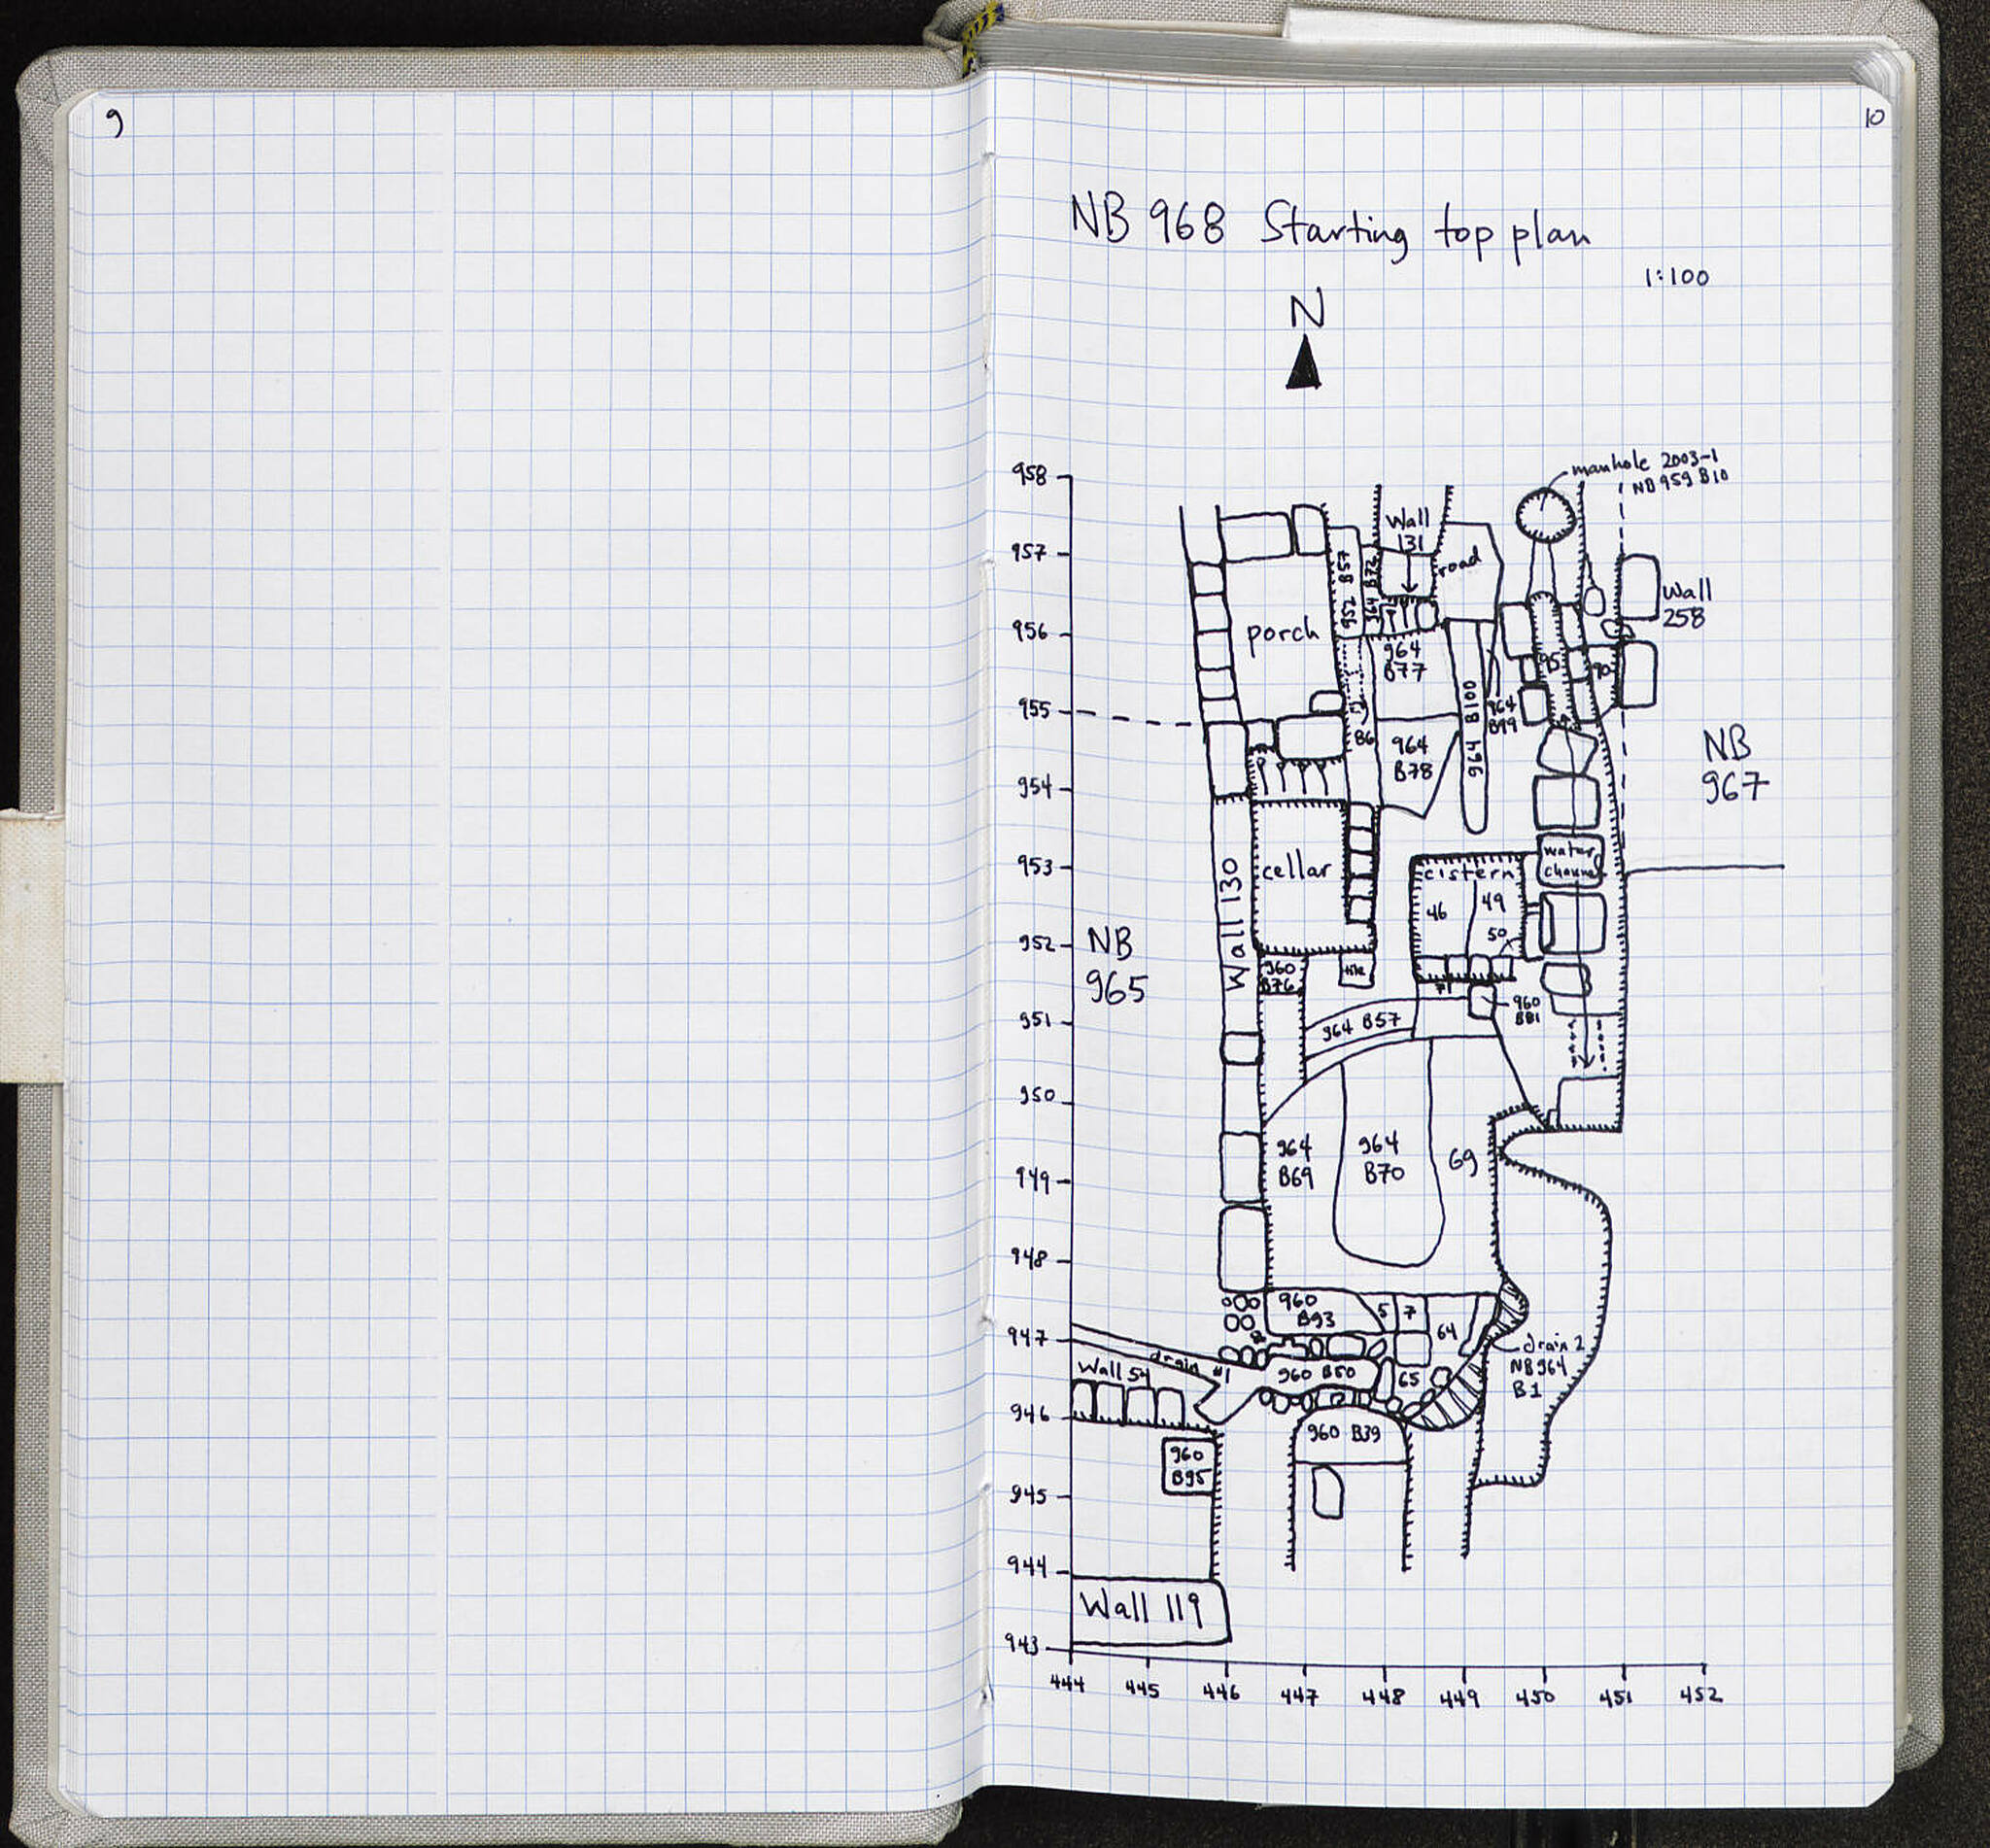 9
10
NB 968 Starting top plan
1:100
N
manhole 2003-1
NB 959 B10
958
957
956
955
954
953
952
951
950
949
948
947
946
945
944
943
Wall
131
road
952 B57
964 B72
Wall
258
porch
964
B77
95
90
964 B100
964
B99
86
964
B78
NB
967
cellar
Wall 130
cistern
46
49
50
water
channel
NB
965
960
B76
tile
71
960
B81
964 B57
964
B69
964
B70
69
960
B93
5
7
64
drain 2
NB 964
B1
drain #1
Wall 54
960 B50
65
960 B39
960
B95
Wall 119
444 445 446 447 448 449 450 451 452